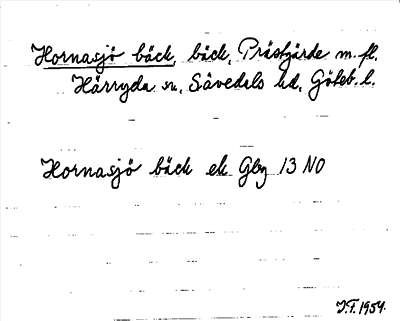 Hornasjö bäck, bäck, Prästgärde m. fl.
Härryda sn, Sävedals hd, Göteb. l.
Hornasjö bäck ek Gbg 13 NO
J.F. 1954.